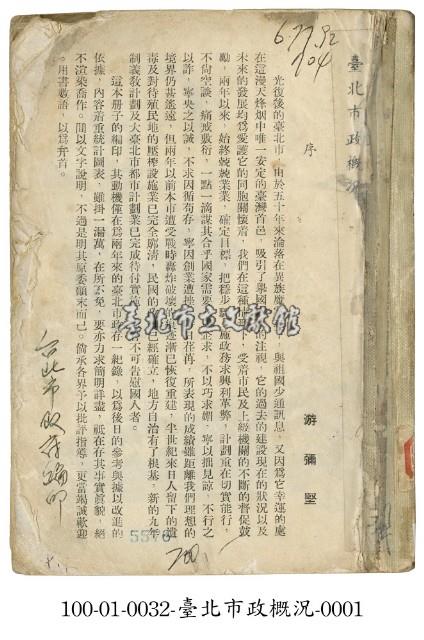 臺北市政概況
序
游彌堅
光復後的臺北市，由於五十年來淪落在異族魔
，與祖國少通訊息，又因爲它幸運的處
在這漫天烽烟中唯一安定的臺灣首邑，吸引了舉國
的注視，它的過去的建設現在的狀況以及
未來的發展均爲愛護它的同胞關懷着，我們在這種
下，受着市民及上級機關的不斷的督促鼓
勵，兩年以來，始終兢兢業業，確定目標，把穩步
施政務求興利革弊，計劃重在切實能行，
不尙空談，痛戒敷衍，一點一滴謀其合乎國家需要
企求，不以巧求媚，寧以拙見諒，不行之
以詐，寧央之以誠，不求因循苟存，寧因創業遭挫
苒，所表現的成績雖距離我們理想的
境界仍甚遙遠，但兩年以前本市遭受戰時轟炸破壞
逐漸已恢復重建，半世紀來日人留下的遺
毒及對待殖民地的
設施業已完全廓清，民國的
已經確立，地方自治有了根基，新的九年
制義敎計劃及大臺北市都市計劃業已完成待付實施
不可告慰國人者。
這本册子的編印，其動機僅在爲兩年來的臺北市政存一紀錄，以爲後日的參考與據以改進的
依據，內容着重統計圖表，雖掛一漏萬，在所不免，要亦力求簡明詳盡，祗在存其事實眞貌，絕
不渲染喬作。間以文字說明，不過是明其原委顚末而已。倘承各界予以批評指導，更當竭誠歡迎
。用書數語，以爲弁首。
臺北市立文獻館
5576
100-01-0032-臺北市政概況-0001